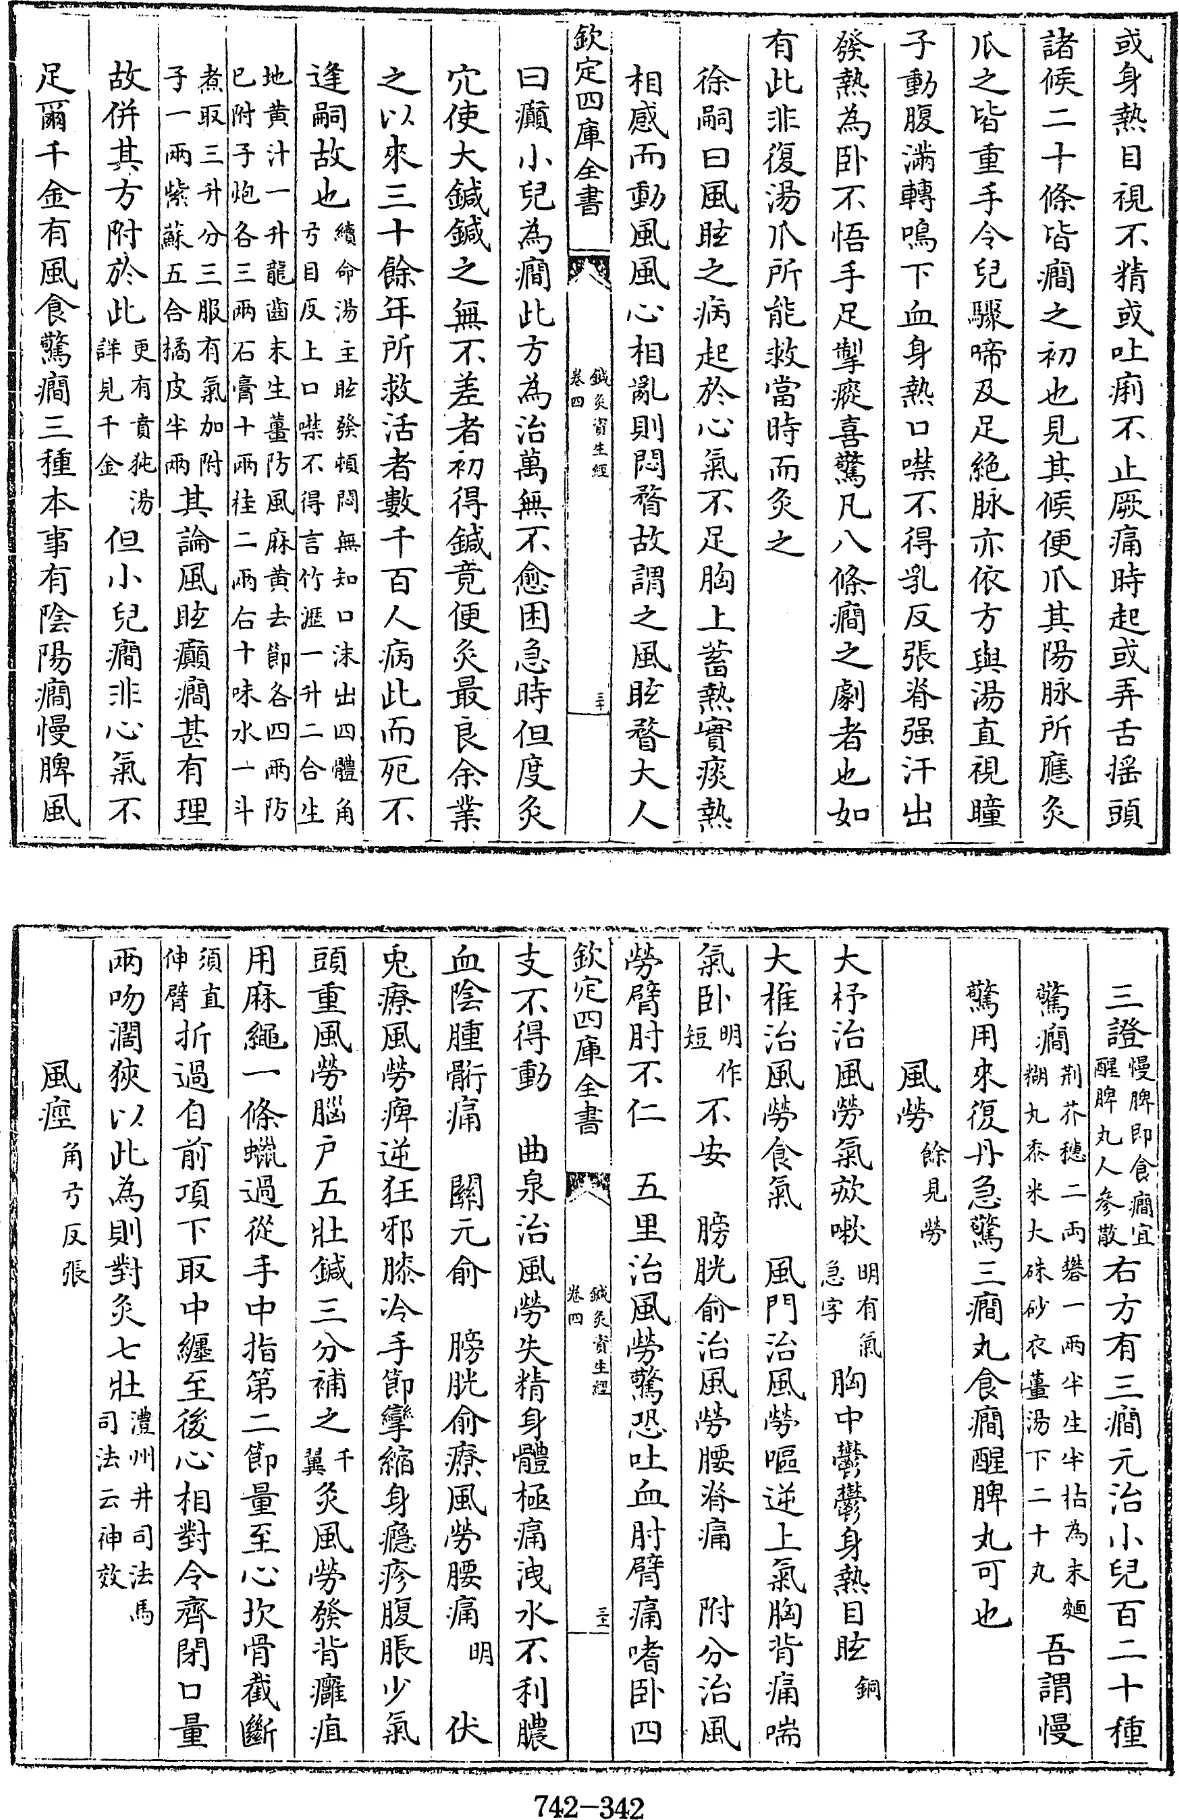 或身熱目視不精或吐痢不止厥痛時起或弄舌揺頭
諸候二十條皆癎之初也見其候便爪其陽脉所應灸
爪之皆重手令兒驟啼及足絶脉亦依方與湯直視瞳
子動腹滿轉鳴下血身熱口噤不得乳反張脊强汗出
發熱為卧不悟手足掣瘲喜驚凡八條癎之劇者也如
有此非復湯爪所能救當時而灸之
徐嗣曰風眩之病起於心氣不足胸上蓄熱實痰熱
相感而動風風心相亂則悶瞀故謂之風眩瞀大人
欽定四庫全書
鍼灸資生經
卷四
三十
曰癲小兒為癎此方為治萬無不愈困急時但度灸
穴使大鍼鍼之無不差者初得鍼竟便灸最良余業
之以來三十餘年所救活者數千百人病此而死不
逢嗣故也續命湯主眩發頓悶無知口沫出四體角
弓目反上口噤不得言竹瀝一升二合生
地黄汁一升龍齒末生薑防風麻黄去節各四兩防
已附子炮各三兩石膏十兩桂二兩右十味水一斗
煮取三升分三服有氣加附
子一兩紫蘇五合橘皮半兩其論風眩癲癎甚有理
故併其方附於此更有賁㹠湯
詳見千金但小兒癎非心氣不
足爾千金有風食驚癎三種本事有陰陽癎慢脾風
三證慢脾即食癎宜
醒脾丸人參散右方有三癎元治小兒百二十種
驚癎荆芥穗二兩礬一兩半生半枯為末麵
糊丸黍米大硃砂衣薑湯下二十丸吾謂慢
驚用來復丹急驚三癎丸食癎醒脾丸可也
風勞餘見勞
大杼治風勞氣欬嗽明有氣
急字胸中鬱鬱身熱目眩銅
大椎治風勞食氣　風門治風勞嘔逆上氣胸背痛喘
氣卧明作
短不安　膀胱俞治風勞腰脊痛　附分治風
勞臂肘不仁　五里治風勞驚恐吐血肘臂痛嗜卧四
欽定四庫全書
鍼灸資生經
卷四
三十一
支不得動　曲泉治風勞失精身體極痛洩水不利膿
血陰腫䯒痛　關元俞　膀胱俞療風勞腰痛明　伏
兎療風勞痺逆狂邪膝冷手節攣縮身癮疹腹脹少氣
頭重風勞腦户五壯鍼三分補之千
翼灸風勞發背癰疽
用麻繩一條蠟過從手中指第二節量至心坎骨截斷
須直
伸臂折過自前項下取中纏至後心相對令齊閉口量
兩吻濶狹以此為則對灸七壯澧州井司法馬
司法云神效
風痙角弓反張
742-342